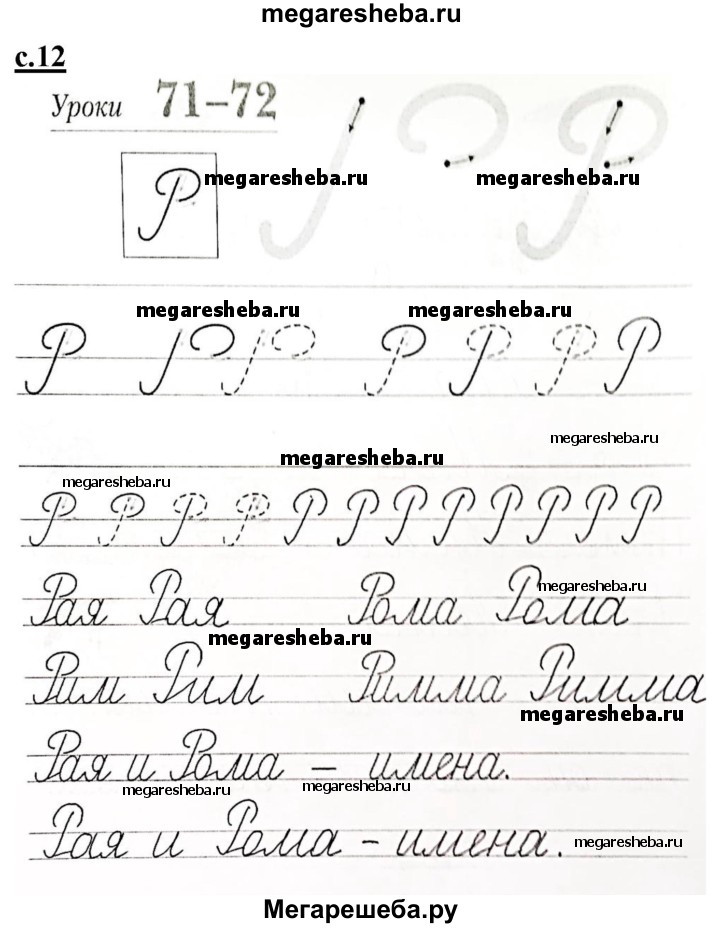 megaresheba.ru
с.12
Уроки 71–72
Р megaresheba.ru megaresheba.ru
megaresheba.ru megaresheba.ru
Р Р Р Р Р Р Р
megaresheba.ru
megaresheba.ru
megaresheba.ru
Р Р Р Р Р Р Р Р Р Р Р Р
megaresheba.ru
Рая Рая Рома Рома
megaresheba.ru
Рим Рим Римма Римма
megaresheba.ru
Рая и Рома – имена.
megaresheba.ru megaresheba.ru
Рая и Рома - имена.
megaresheba.ru
Мегарешеба.ру